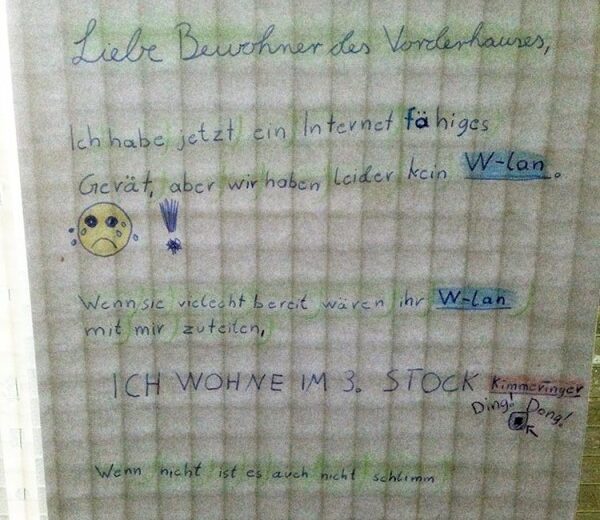 Liebe Bewohner des Vorderhauses,
Ich habe jetzt ein Internet fähiges
Gerät, aber wir haben leider kein W-lan.
!
Wenn sie vielecht bereit wären ihr W-lan
mit mir zuteilen,
ICH WOHNE IM 3. STOCK Kimmeringer
Ding! Dong!
Wenn nicht ist es auch nicht schlimm